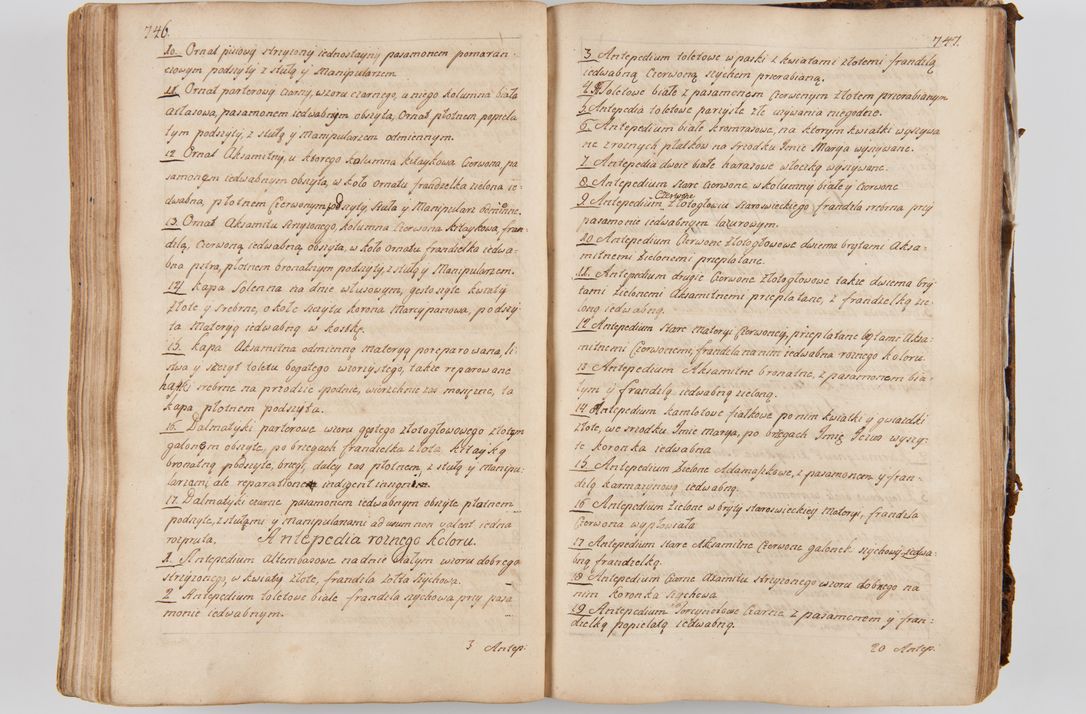 746.
10. Ornat pisowÿ strzyzonÿ iednostaynÿ pasamonem pomaran-
czowym podszyty z stułą y Manipularzem.
11. Ornat parterowÿ czarnÿ, wzoru czarnego, u niego kolumna biała
atłasowa, pasamonem iedwabnym obszyta, Ornat płotnem popiela
tym podszyty, z stułą y Manipularzem odmiennym.
12. Ornat Aksamitny, u ktorego kolumna kitaykowa Czerwona, pa
samonem iedwabnym obszyta, w koło Ornatu frandzelka zielona ie-
dwabna, płotnem Czerwonym podszyty, stuła y Manipularz odmienne.
13. Ornat Aksamitu strzyzonego, kolumna Czerwona kitaykowa, fran
dzlą, Czerwoną iedwabną obszyta, w koło Ornatu frandzelka iedwa-
bna pstra, płotnem bronatnym podszyty, z stułą y Manipularzem.
14. Kapa Solenna na dnie włusowym, gęsto szyte kwiaty
złote y srebrne, około szczytu korona Marcypanowa, podszy-
ta Materyą iedwabną w kostkę.
15. Kapa Aksamitna odmienną materyą poreparowana, li-
stwa y szczyt toletu bogatego wzorzystego, takze reparowane
haftki srebrne na przodzie spodnie, wierzchnie zas mosięzne, ta
kapa płotnem podszyta.
16. Dalmatyki parterowe wzoru gęstego złotogłowowego złotym
galonem obszyte, po brzegach frandzelka złota, kitayką
bronatną podszyte, brzegi, daley zas płotnem, z stułą y manipu-
larzami ale reparatione indigent
17. Dalmatyki czarne pasamonem iedwabnym obszyte płotnem
podszyte, z stułami y manipularzami ad usum non valent iedna
rozpruta. Antepedia roznego koloru.
1. Antepedium Altembasowe na dnie białym wzoru dobrego
strzyzonego, w kwiaty złote, frandzla zołta szychowa.
2. Antepedium toletowe białe frandzla szychowa, przy pasa
monie iedwabnym.
3 Antep:
747.
3. Antepedium toletowe w paski z kwiatami złotemi frandzlą
iedwabną Czerwoną szychem przerabianą.
4. Toletowe białe z pasamonem Czerwonym złotem przerabianym
5. Antepedia toletowe partyste złe uzywania niegodne.
6. Antepedium białe kromrasowe, na ktorym kwiatki wyszywa
ne z roznych płatkow na srzodku Imie Marya wyszywane.
7. Antepedia dwoie białe harasowe włoczką wyszywane.
8. Antepedium stare Czerwone w kolumny białe y Czerwone
9. Antepedium Czerwone złotogłowu starowieckiego frandzla srebrna przy
pasamonie iedwabnym lazurowym.
10. Antepedium Czerwone złotogłowowe dwiema brytami Aksa-
mitnemi zielonemi przeplatane.
11. Antepedium drugie Czerwone złotogłowowe takze dwiema bry-
tami zielonemi Aksamitnemi przeplatane, z frandzelką zie
loną iedwabną.
12. Antepedium stare materyi Czerwoney, przeplatane brytami Aksa-
mitnemi Czerwonemi, frandzla na nim iedwabna roznego koloru
13. Antepedium Aksamitne bronatne, z pasamonem bia-
łym ÿ frandzlą iedwabną zieloną.
14. Antepedium kamlotowe fiałkowe po nim kwiatki y gwiazdki
złote, we srzodku Imie Marya, po brzegach Imie Jezus wyszy-
te koronka iedwabna
15. Antepedium zielone Adamaszkowe, z pasamonem y fran-
dzlą karmazynową iedwabną.
16. Antepedium zielone w bryty starowieckiey materyi, frandzla
Czerwona wypłowiała
17. Antepedium stare Aksamitne Czerwone galonek szychowy iedwa-
bną frandzelką.
18. Antepedium Czarne Axamitu strzyzonego wzoru dobrego na
nim koronka szychowa
19. Antepedium Porcynelowe Czarne z pasamonem y fran-
dzelką popielatą iedwabną.
20 Antep: